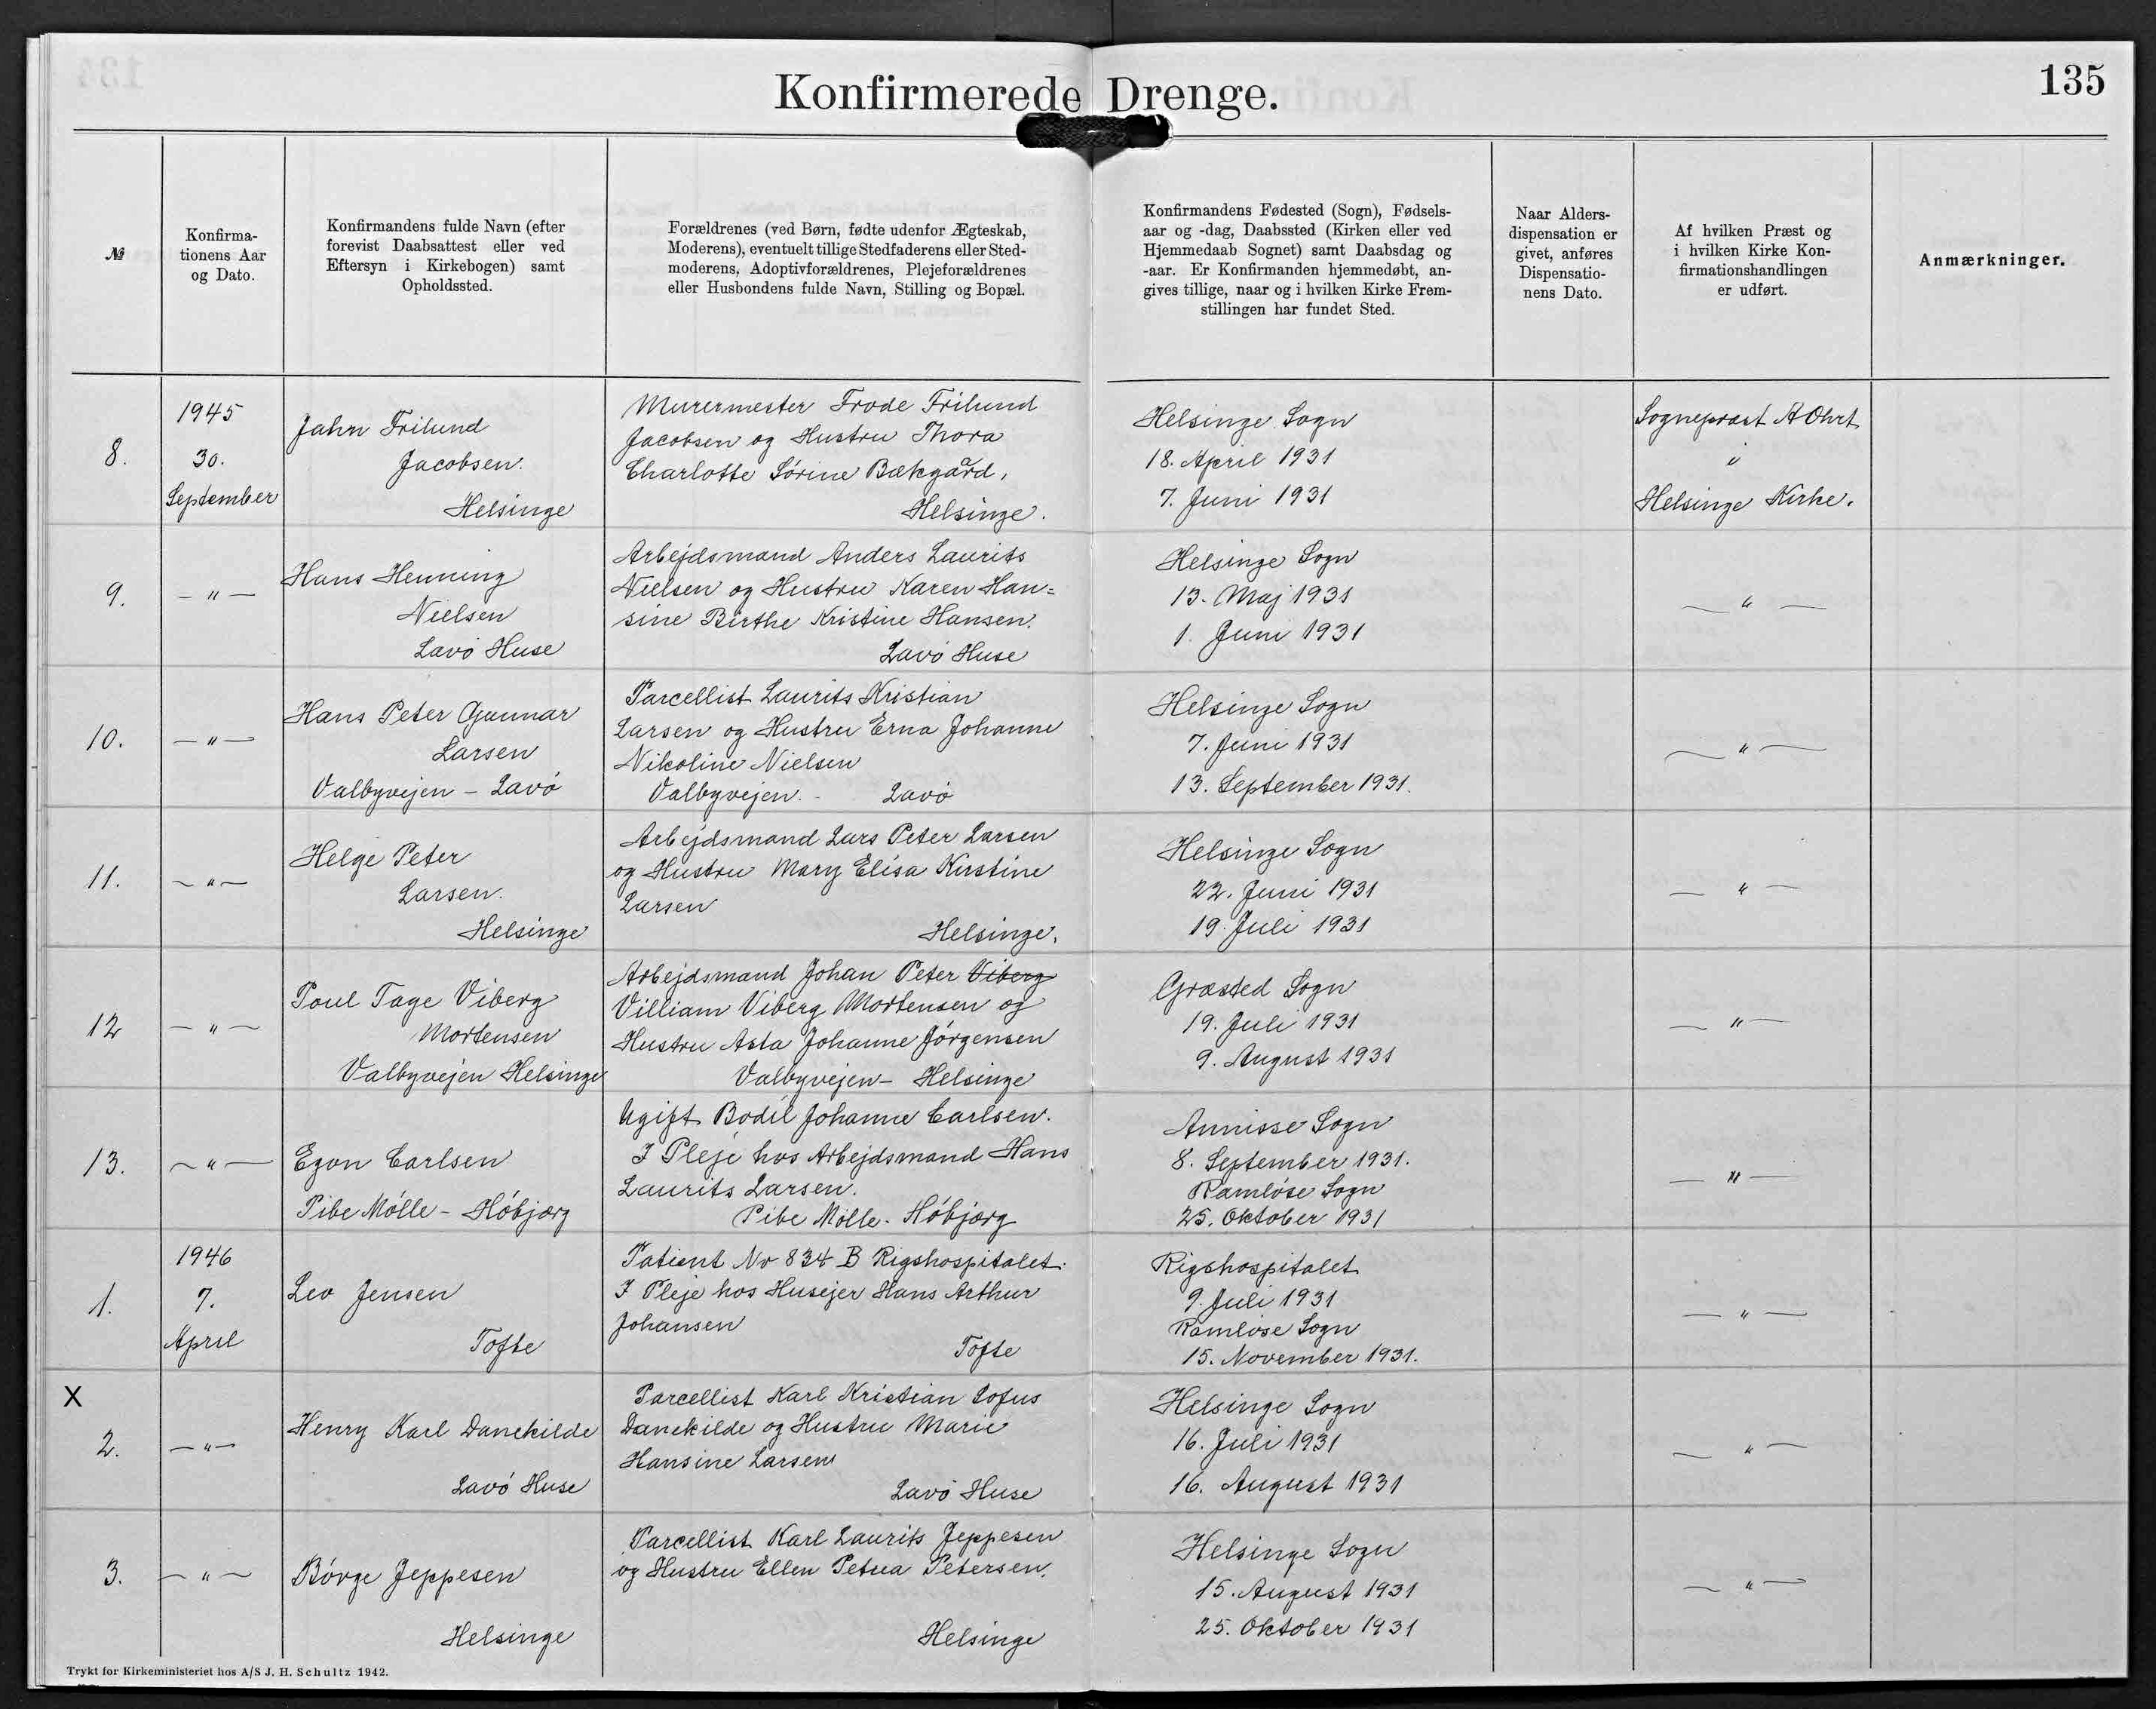 Konfirmerede Drenge.
135
№
Konfirma-
tionens Aar
og Dato.
Konfirmandens fulde Navn (efter
forevist Daabsattest eller ved
Eftersyn i Kirkebogen) samt
Opholdssted.
Forældrenes (ved Børn, fødte udenfor Ægteskab,
Moderens), eventuelt tillige Stedfaderens eller Sted-
moderens, Adoptivforældrenes, Plejeforældrenes
eller Husbondens fulde Navn, Stilling og Bopæl.
Konfirmandens Fødested (Sogn), Fødsels-
aar og -dag, Daabssted (Kirken eller ved
Hjemmedaab Sognet) samt Daabsdag og
-aar. Er Konfirmanden hjemmedøbt, an-
gives tillige, naar og i hvilken Kirke Frem-
stillingen har fundet Sted.
Naar Alders-
dispensation er
givet, anføres
Dispensatio-
nens Dato.
Af hvilken Præst og
i hvilken Kirke Kon-
firmationshandlingen
er udført.
Anmærkninger.
8.
1945
30.
September
Jahn Frilund
Jacobsen.
Helsinge
Murermester Frode Frilund
Jacobsen og Hustru Thora
Charlotte Sørine Bækgård,
Helsinge.
Helsinge Sogn
18. April 1931
7. Juni 1931
Sognepræst A Ohrt
"
Helsinge Kirke.
9.
— " —
Hans Henning
Nielsen
Lavø Huse
Arbejdsmand Anders Laurits
Nielsen og Hustru Karen Han=
sine Birthe Kristine Hansen.
Lavø Huse
Helsinge Sogn
13. Maj 1931
1. Juni 1931
— " —
10.
— " —
Hans Peter Gunnar
Larsen
Valbyvejen - Lavø
Parcellist Laurits Kristian
Larsen og Hustru Erna Johanne
Nikoline Nielsen
Valbyvejen. - Lavø
Helsinge Sogn
7. Juni 1931
13. September 1931.
— " —
11.
— " —
Helge Peter
Larsen.
Helsinge
Arbejdsmand Lars Peter Larsen
og Hustru Mary Elisa Kirstine
Larsen
Helsinge.
Helsinge Sogn
22. Juni 1931
19. Juli 1931
— " —
12
— " —
Poul Tage Viberg
Mortensen
Valbyvejen Helsinge
Arbejdsmand Johan Peter Viberg
Villiam Viberg Mortensen og
Hustru Asta Johanne Jørgensen
Valbyvejen - Helsinge
Græsted Sogn
19. Juli 1931
9. August 1931
— " —
13.
— " —
Egon Carlsen
Pibe Mølle - Høbjærg
Ugift Bodil Johanne Carlsen.
I Pleje hos Arbejdsmand Hans
Laurits Larsen.
Pibe Mølle. Høbjærg
Annisse Sogn
8. September 1931.
Ramløse Sogn
25. Oktober 1931
— " —
1.
1946
7.
April
Leo Jensen
Tofte
Patient No 834 B Rigshospitalet.
I Pleje hos Husejer Hans Arthur
Johansen
Tofte
Rigshospitalet
9. Juli 1931
Ramløse Sogn
15. November 1931.
— " —
X
2.
— " —
Henry Karl Danekilde
Lavø Huse
Parcellist Karl Kristian Sofus
Danekilde og Hustru Marie
Hansine Larsen
Lavø Huse
Helsinge Sogn
16. Juli 1931
16. August 1931
— " —
3.
— " —
Børge Jeppesen
Helsinge
Parcellist Karl Laurits Jeppesen
og Hustru Ellen Petrea Petersen.
Helsinge
Helsinge Sogn
15. August 1931
25. Oktober 1931
— " —
Trykt for Kirkeministeriet hos A/S J. H. Schultz 1942.